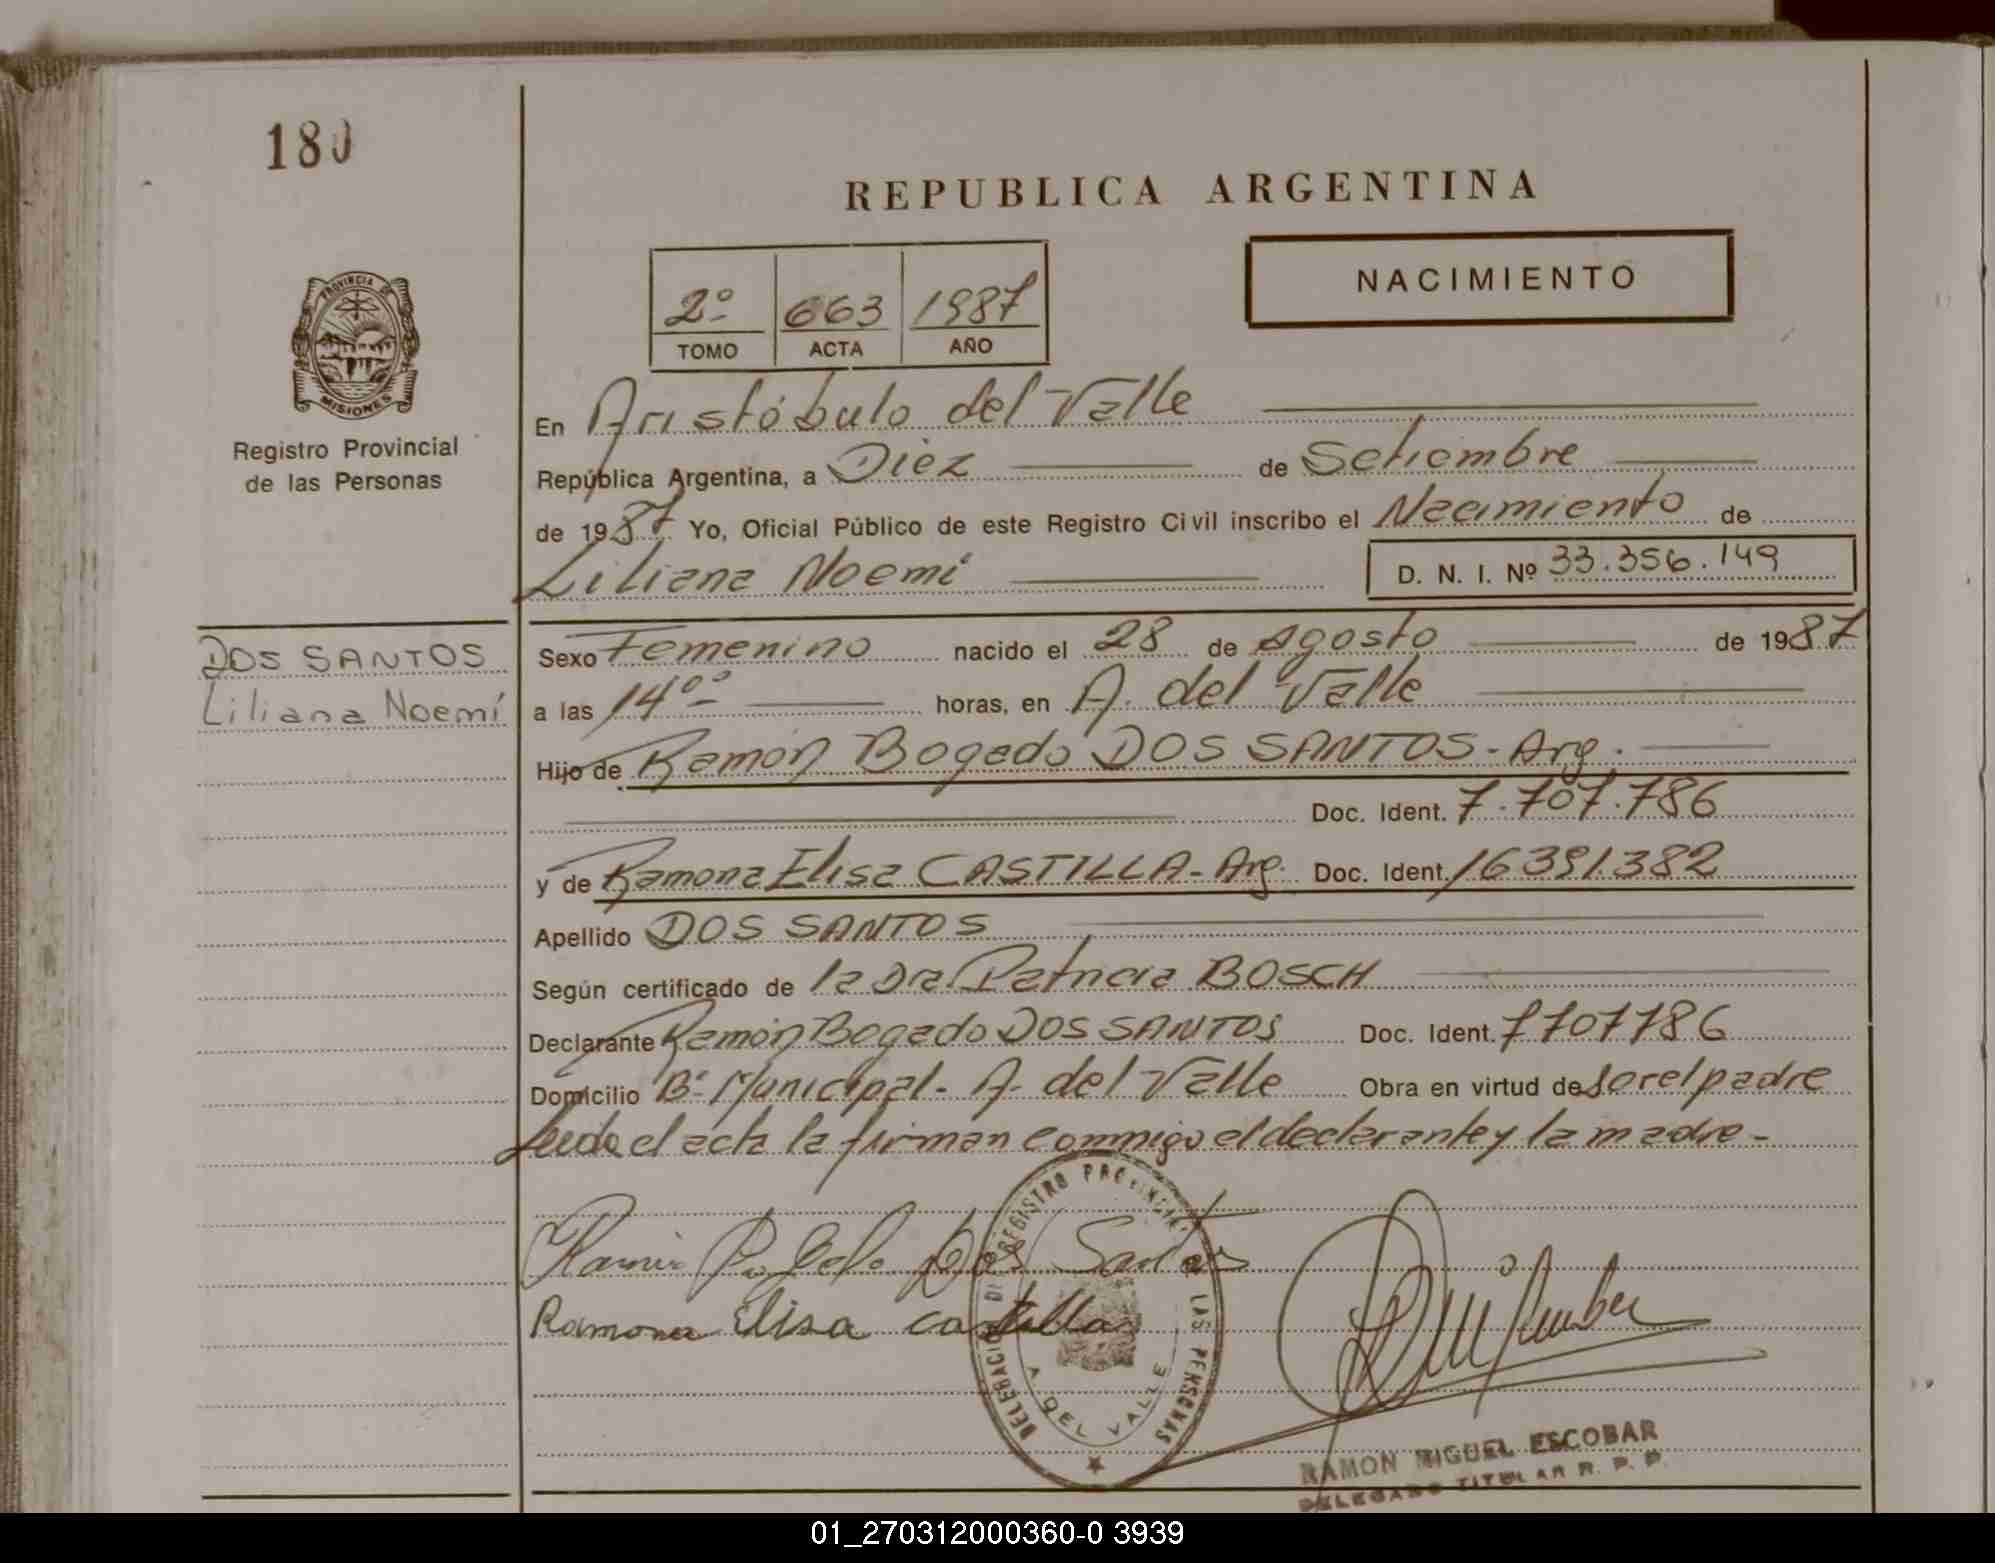 180
REPUBLICA ARGENTINA
NACIMIENTO
2º 663 1987
TOMO ACTA AÑO
PROVINCIA DE
MISIONES
Registro Provincial
de las Personas
En Aristóbulo del Valle
República Argentina, a Diez de Setiembre
de 1987 Yo, Oficial Público de este Registro Civil inscribo el Nacimiento de
Liliana Noemí D. N. I. Nº 33.356.149
DOS SANTOS
Liliana Noemí
Sexo Femenino nacido el 28 de Agosto de 1987
a las 14ºº horas, en A. del Valle
Hijo de Ramón Bogado DOS SANTOS - Arg.
Doc. Ident. 7.707.786
y de Ramona Elisa CASTILLA - Arg. Doc. Ident. 16391.382
Apellido DOS SANTOS
Según certificado de la Dra Patricia BOSCH
Declarante Ramón Bogado DOS SANTOS Doc. Ident. 7707786
Domicilio Bº Municipal - A. del Valle Obra en virtud de ser el padre
Leida el acta la firman conmigo el declarante y la madre -
Dos Santos
Ramona Elisa castilla
DELEGACION DEL REGISTRO PROVINCIAL DE LAS PERSONAS
A. DEL VALLE
RAMON MIGUEL ESCOBAR
DELEGADO TITULAR R. P. P.
01_270312000360-0 3939